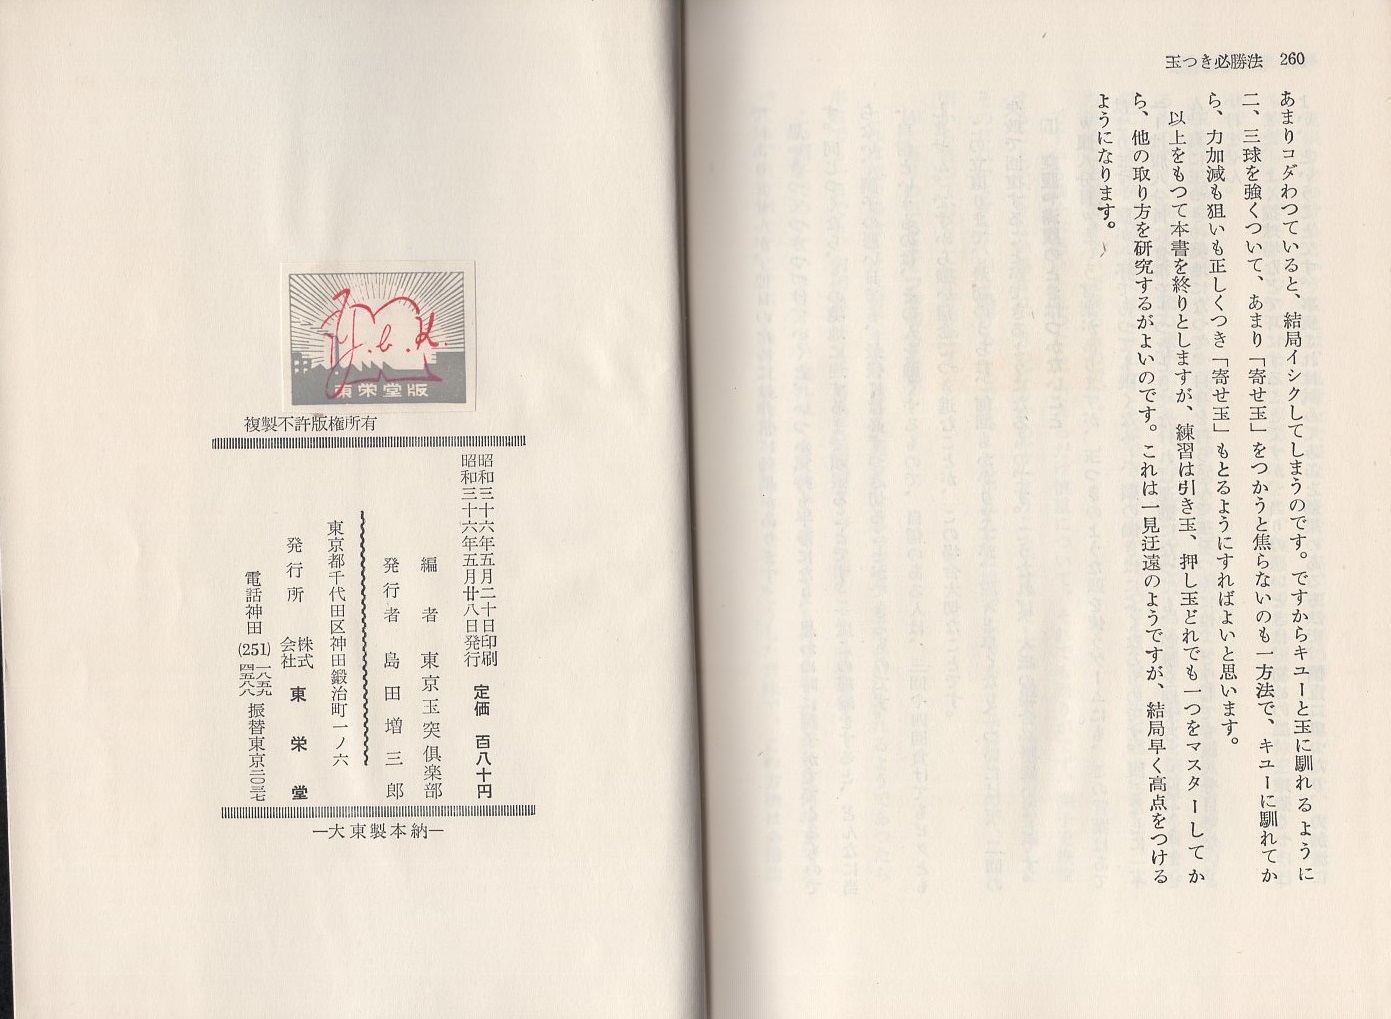 玉つき必勝法 260
あまりコダわつていると、結局イシクしてしまうのです。ですからキユーと玉に馴れるように
二、三球を強くついて、あまり「寄せ玉」をつかうと焦らないのも一方法で、キユーに馴れてか
ら、力加減も狙いも正しくつき「寄せ玉」もとるようにすればよいと思います。
以上をもつて本書を終りとしますが、練習は引き玉、押し玉どれでも一つをマスターしてか
ら、他の取り方を研究するがよいのです。これは一見迂遠のようですが、結局早く高点をつける
ようになります。
東栄堂版
複製不許版権所有
昭和三十六年五月二十日印刷
昭和三十六年五月廿八日発行
定価 百八十円
編者 東京玉突倶楽部
発行者 島田増三郎
東京都千代田区神田鍛冶町一ノ六
発行所 株式会社 東栄堂
電話神田(251)一八五九
四五八八
振替東京二〇三七
―大東製本納―